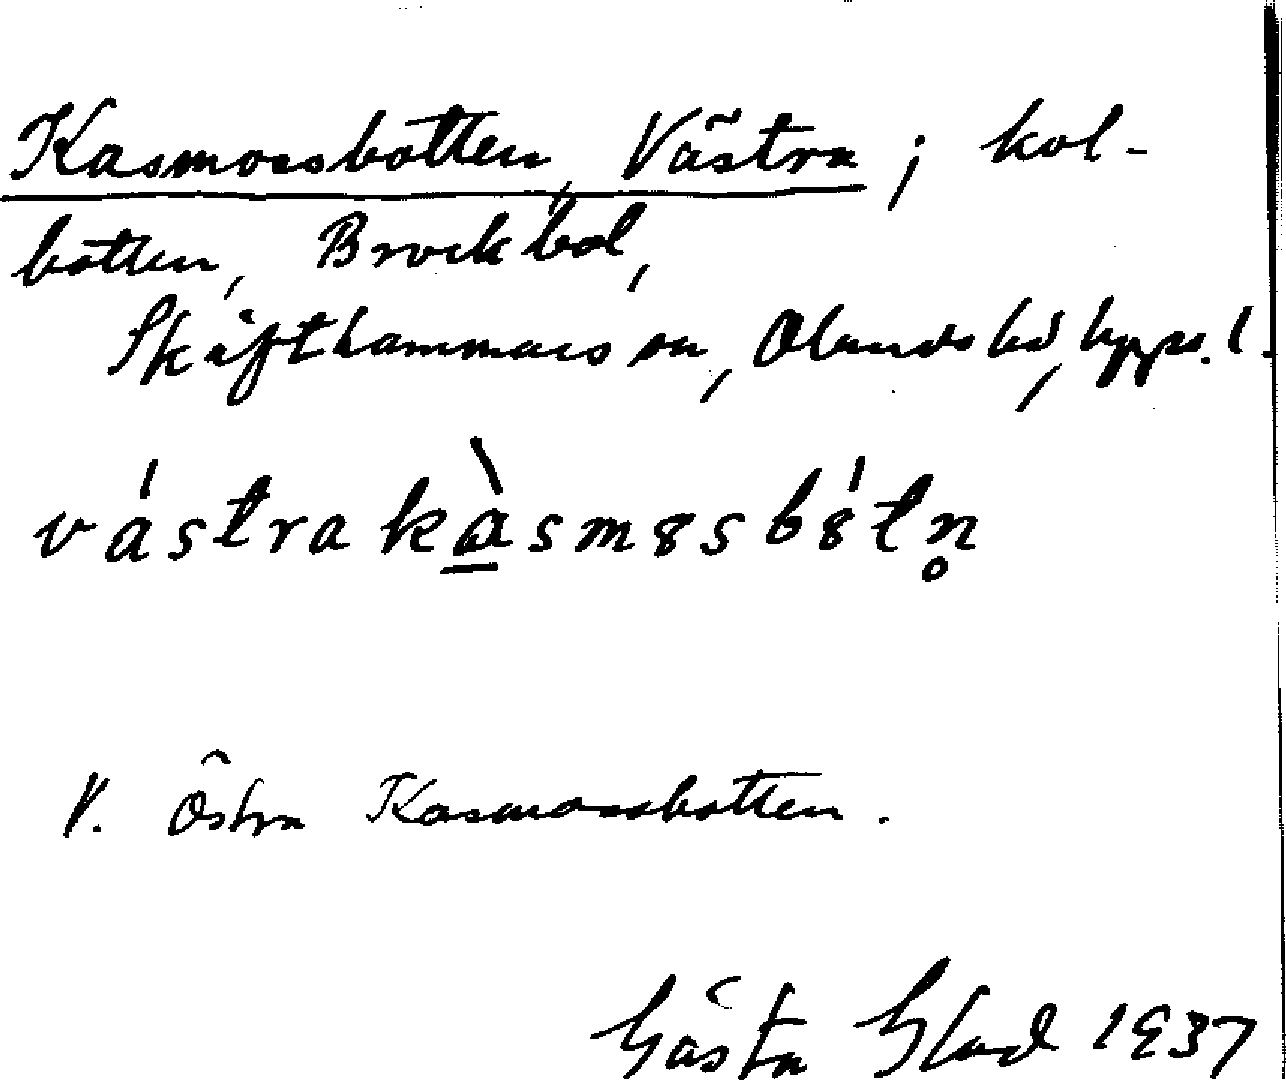 Kasmossbotten, Västra; kol-
botten, Brockbol,
Skäfthammars sn, Olands hd, Upps. l.
vástrakàsmɞsbɞ́tn̥
V. Östra Kasmossbotten.
Gösta Blad 1937